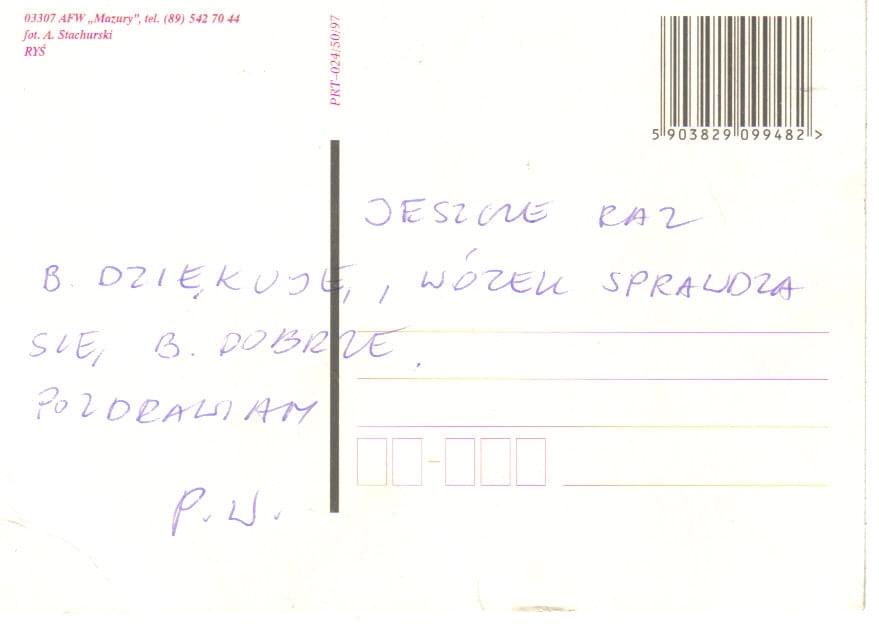 03307 AFW „Mazury”, tel. (89) 542 70 44
fot. A. Stachurski
RYŚ
PRT–024/50/97
5 903829 099482 >
JESZCZE RAZ
B. DZIĘKUJĘ, WÓZEK SPRAWDZA
SIĘ B. DOBRZE.
POZDRAWIAM
P.W.